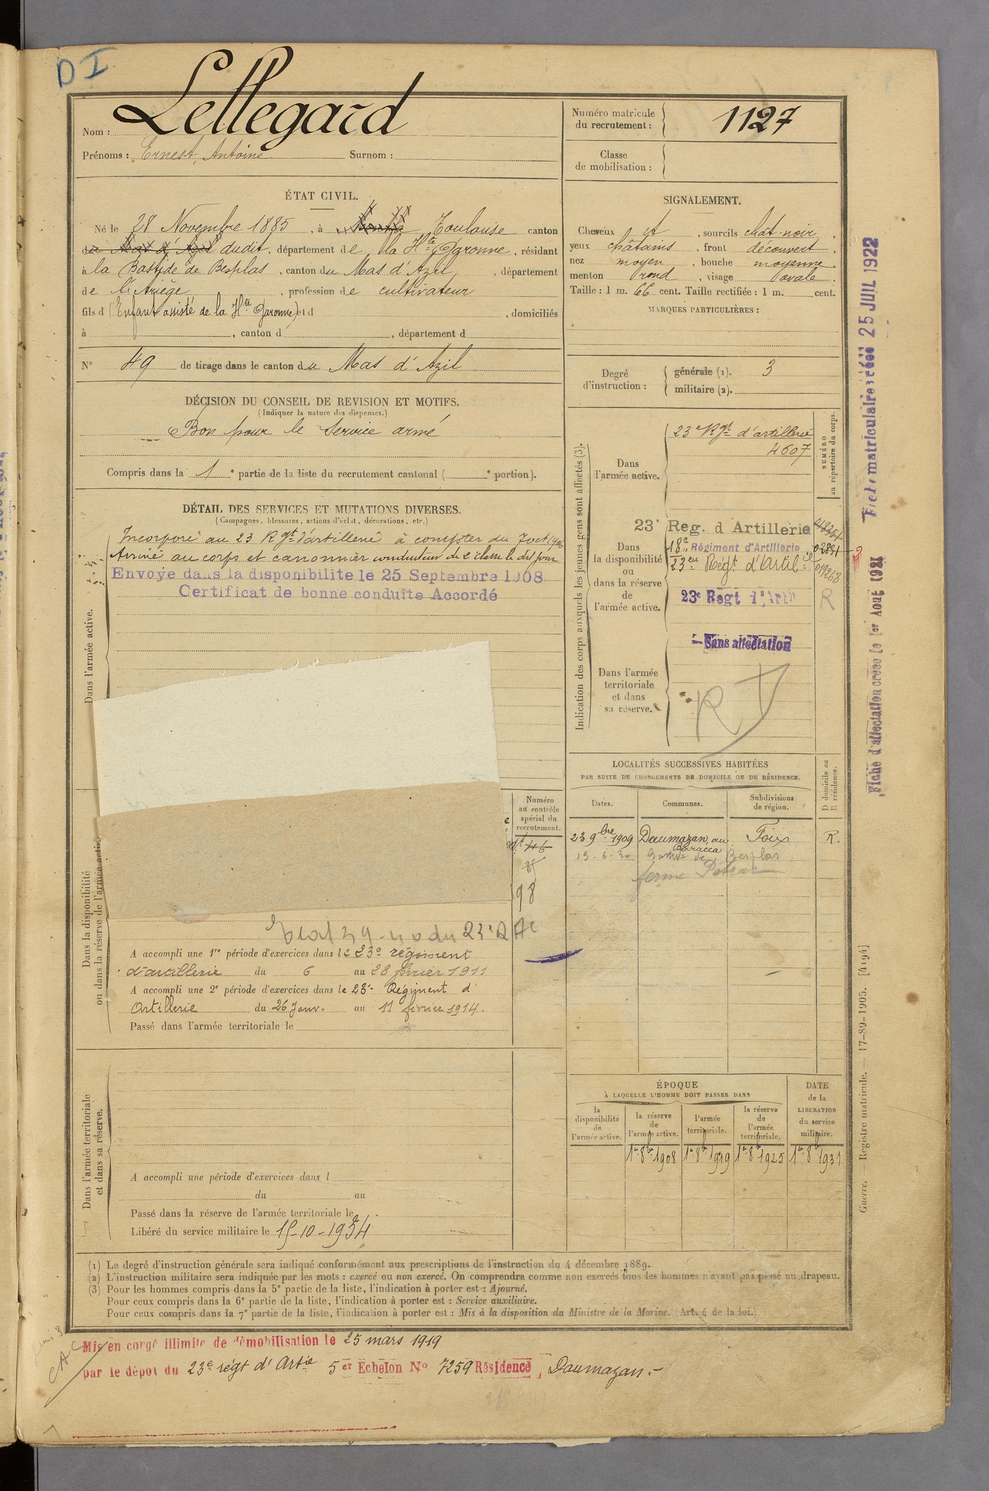 D I
Lellegard
Nom :
Prénoms : Ernest, Antoine Surnom :
Numéro matricule
du recrutement : 1127
Classe
de mobilisation :
ÉTAT CIVIL.
Né le 28 Novembre 1885, à Toulouse canton
dudit, département de la Hte Garonne, résidant
à la Bastide de Besplas, canton du Mas d'Azil, département
de l'Ariège, profession de cultivateur
fils d (Enfant assisté de la Hte Garonne) et d , domiciliés
à , canton d , département d
N° 49 de tirage dans le canton du Mas d'Azil
SIGNALEMENT.
Cheveux et , sourcils chât-noir ,
yeux châtains , front découvert ,
nez moyen , bouche moyenne ,
menton rond , visage ovale .
Taille : 1 m. 66 cent. Taille rectifiée : 1 m. cent.
MARQUES PARTICULIÈRES :
Degré
d'instruction :
générale (1). 3
militaire (2).
DÉCISION DU CONSEIL DE REVISION ET MOTIFS.
(Indiquer la nature des dispenses.)
Bon pour le service armé
Compris dans la 1e partie de la liste du recrutement cantonal ( e portion).
DÉTAIL DES SERVICES ET MUTATIONS DIVERSES.
(Campagnes, blessures, actions d'éclat, décorations, etc.)
Incorporé au 23 Rgt d'artillerie à compter du
Arrivé au corps et canonnier conducteur de 2e classe le dit jour
Envoyé dans la disponibilité le 25 Septembre 1908
Certificat de bonne conduite Accordé
Dans l'armée active.
Indication des corps auxquels les jeunes gens sont affectés (3).
NUMÉRO
au répertoire du corps.
Dans
l'armée active.
23 Rgt d'artillerie
4607
Dans
la disponibilité
ou
dans la réserve
de
l'armée active.
23e Reg. d Artillerie
18e Régiment d'Artillerie
23e Régt d'Artil
23e Regt d'Art
R
Sans affectation
Dans l'armée
territoriale
et dans
sa réserve.
R D
Fiche matriculaire créée 25 JUIL 1922
Fiche d'affectation créée le 1er Août 1921
LOCALITÉS SUCCESSIVES HABITÉES
PAR SUITE DE CHANGEMENTS DE DOMICILE OU DE RÉSIDENCE.
Dates.
Communes.
Subdivisions
de région.
D domicile ou
R résidence.
23 9bre 1909 Daumazan, au Baracca Foix R.
Bastide de Besplas
ferme
Numéro
au contrôle
spécial du
recrutement.
98
Dans la disponibilité
ou dans la réserve de l'armée active
A accompli une 1re période d'exercices dans le 23e régiment
d'artillerie du 6 au 28 février 1911
A accompli une 2e période d'exercices dans le 23e Régiment d'
Artillerie du 26 Janv. au 11 février 1914.
Passé dans l'armée territoriale le
Dans l'armée territoriale
et dans sa réserve.
A accompli une période d'exercices dans l
du au
Passé dans la réserve de l'armée territoriale le
Libéré du service militaire le 15-10-1934
ÉPOQUE
À LAQUELLE L'HOMME DOIT PASSER DANS
la
disponibilité
de
l'armée active.
la réserve
de
l'armée active.
l'armée
territoriale.
la réserve
de
l'armée
territoriale.
DATE
de la
LIBÉRATION
du service
militaire.
1er 8bre 1908 1er 8bre 1919 1er 8bre 1925 1er 8bre 1931
Guerre. — Registre matricule. — 17-89-1905. [4194]
(1) Le degré d'instruction générale sera indiqué conformément aux prescriptions de l'instruction du 4 décembre 1889.
(2) L'instruction militaire sera indiquée par les mots : exercé ou non exercé. On comprendra comme non exercés tous les hommes n'ayant pas passé au drapeau.
(3) Pour les hommes compris dans la 5e partie de la liste, l'indication à porter est : Ajourné.
Pour ceux compris dans la 6e partie de la liste, l'indication à porter est : Service auxiliaire.
Pour ceux compris dans la 7e partie de la liste, l'indication à porter est : Mis à la disposition du Ministre de la Marine. (Art. 4 de la loi.)
Mis en congé illimité de démobilisation le 25 mars 1919
par le dépôt du 23e régt d'Artie 5er Echelon N° 7259 Résidence Daumazan.-